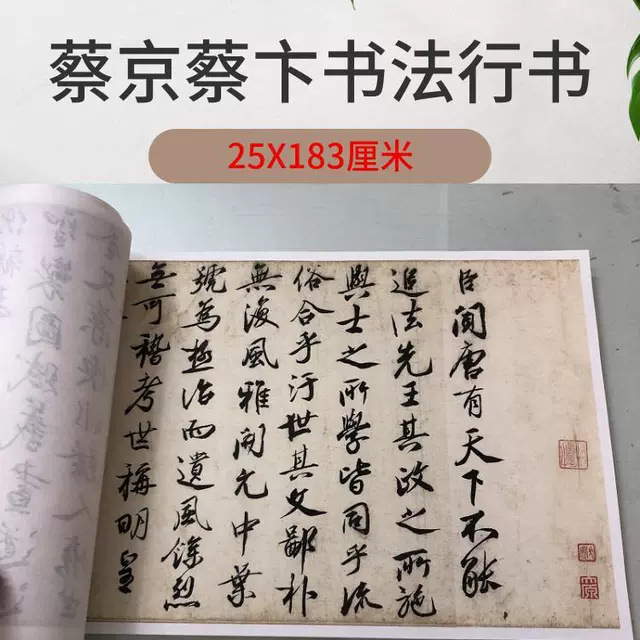 蔡京蔡卞书法行书
25X183厘米
臣聞唐有天下不能
追法先王其政之所施
與士之所學皆同乎流
俗合乎汙世其文鄙朴
無復風雅開元中葉
號為極治而遺風餘烈
無可稽考世稱明皇